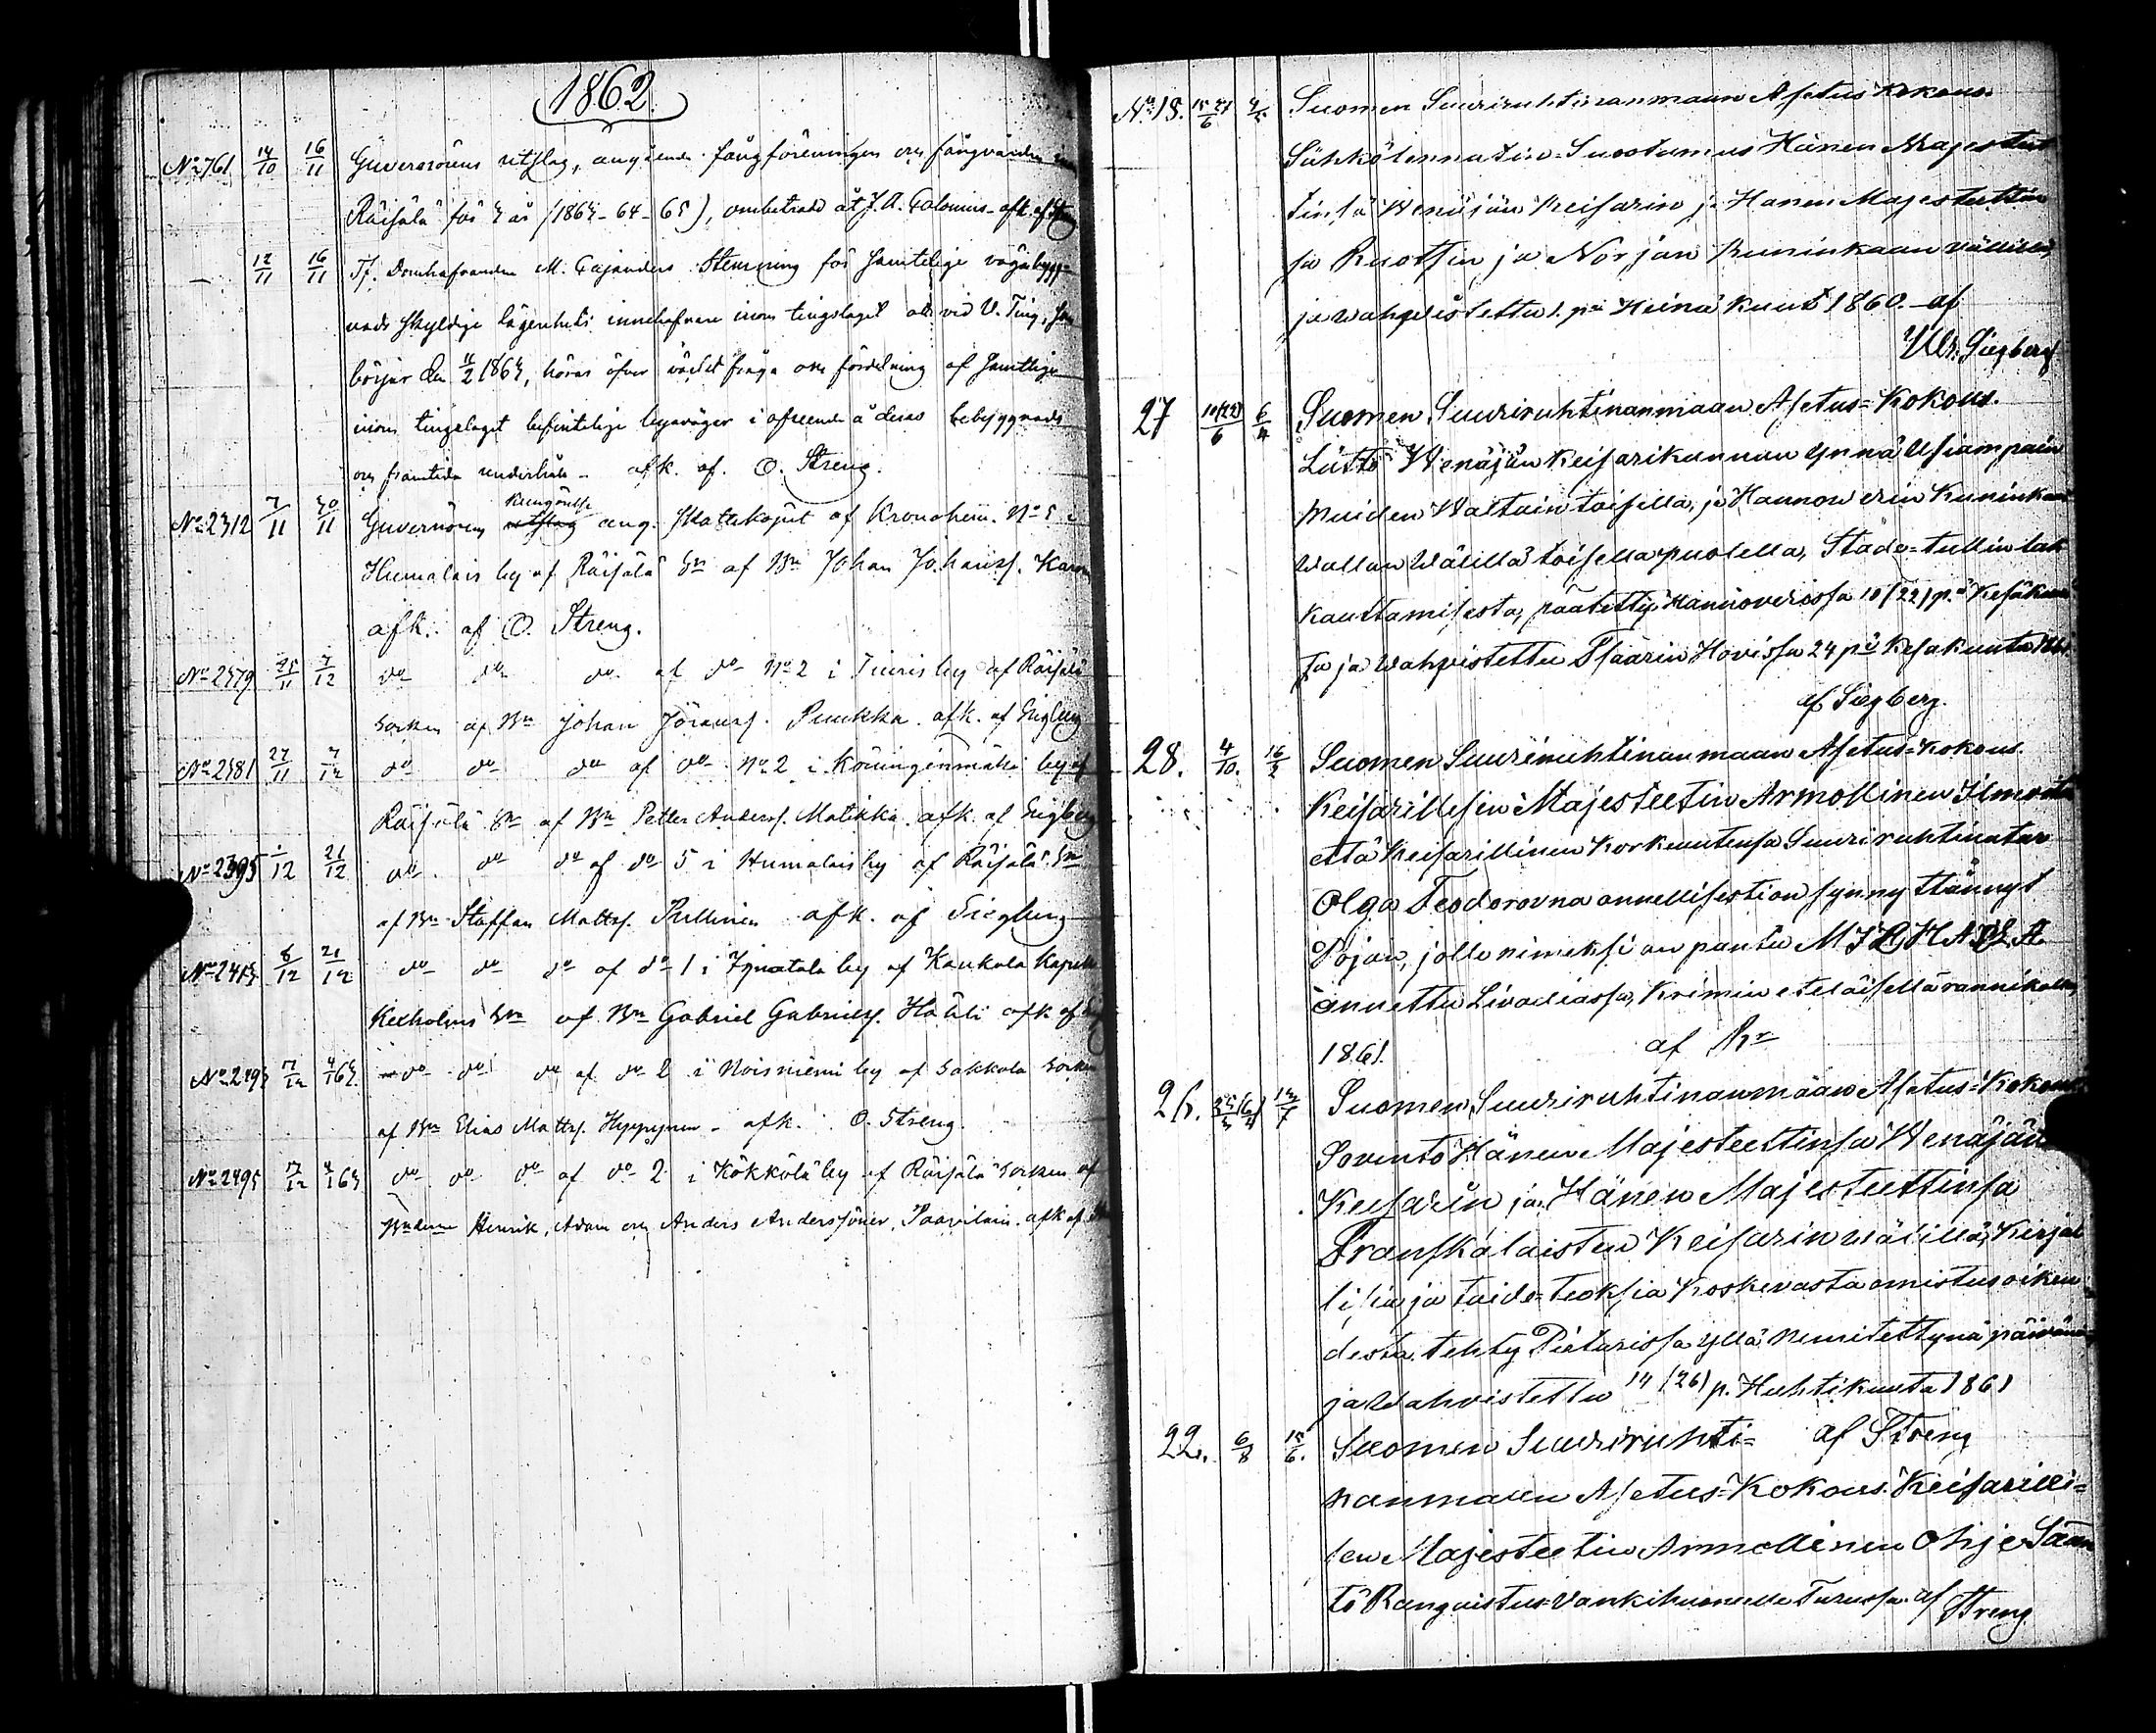 1862.
No 761 14/10 16/11 Guvernörens utslag, angående fångföreningen och fångvården
Räisälä för 3 år (1863-64-65), ombetrodd åt J. A. Calonius. afk. af
— 12/11 16/11 Tf. Domhafvanden M. Cajanders Stemning för samtelige vägabygg-
nads skyldige lägenhets innehafvare inom tingslaget att vid V. Ting, som
börjar den 11/2 1863, höras öfver väckt fråga om fördelning af samtlige
inom tingslaget befintelige byavägar i afseende å deras bebyggnad
och framtida underhåll - afk. af. O. Streng.
No 2312 7/11 30/11 Guvernörens Kungörelse ang. Skatteköpet af Kronohem. No 5 i
Humalais by af Räisälä Sn af Bn Johan Johanss.
afk. af O. Streng.
No 2379 25/11 7/12 do do do af do No 2 i Tiuris by af Räisälä
Socken af Bn Johan Jöranss. Puukka. afk. af
No 2381 27/11 7/12 do do do af do No 2 i Köninginmäki by af
Räisälä Sn af Bn Petter Anderss. Matikka. afk. af
No 2395 1/12 21/12 do do do af do 5 i Humalais by af Räisälä Sn
af Bn Staffan Mattss. Pullinen afk. af
No 2413 8/12 21/12 do do do af do 1 i Ignatala by af Kaukola Kapell
Kexholms Sn af Bn Gabriel Gabrielss. afk af
No 2493 17/12 4/1 63 do do do af do 2 i Noisniemi by af Sakkola Socken
af Bn Elias Mattss. Hyppynen - afk. O. Streng.
No 2495 17/12 4/1 63 do do do af do 2 i Kökkölä by af Räisälä Socken af
Henrik, Adam och Anders Anderssöner, Paavilain. afk af
No 18. Suomen Suuriruhtinanmaan Asetus Kokous.
Sähkölennätin-Suostumus Hänen Majestet
tinsä Wenäjän Keisarin ja Hänen Majestettin
sa Ruotsin ja Norjan Kuninkaan välillä,
ja wahwistettu 1. pä Heinä Kuut 1860. af
Ulr. Siegberg
27 10(22)/6 6/4 Suomen Suuriruhtinanmaan Asetus=Kokous.
Liitto Wenäjän Keisarikunnan ynnä Usiampain
muiden Waltain toisella, ja Hannowerin Kuninkaan
wallan Wälillä toisella puolella, Stade=tullin lak
kauttamisesta, päätetty Hannoverissa 10(22) p.ä Kesäkuu
ta ja wahwistettu Tsaarin Hovissa 24 pä Kesäkuuta
af Siegberg.
28. 4/10. Suomen Suuriruhtinanmaan Asetus=Kokous.
Keisarillisen Majesteetin Armollinen Ilmoitus
että Keisarillinen Korkeutensa Suuriruhtinatar
Olga Feodorovna onnellisesti on synnyttännyt
Pojan, jolle nimeksi on pantu MIKHAILA.
annettu Livadiassa, Krimin eteläisellä rannikolla
1861. af
26. Suomen Suuriruhtinanmaan Asetus=Kokous
Sovinto Hänen Majesteettinsa Wenäjän
Keisarin ja Hänen Majesteettinsa
Franskalaisten Keisarin wälillä, Kirjal
lisia ja taide=teoksia Koskevasta omistus oikeu
desta, tehty Pietarissa yllä nimitettynä päivänä
ja Wahvistettu 14 (26) p. Huhtikuuta 1861
22. 6/8 15/6. Suomen Suuriruhti= af Streng
nanmaan Asetus=Kokous. Keisarilli=
sen Majesteetin Armollinen Ohje Sään
tö Rangaistus=Vankihuoneelle Turussa. af Streng